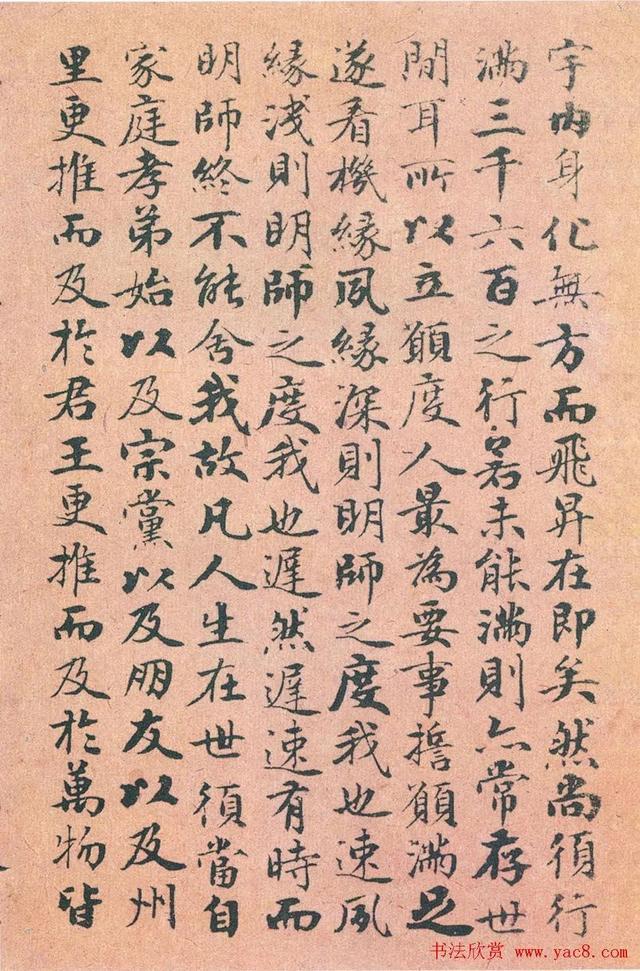 宇内身化無方而飛昇在即矣然尚須行
滿三千六百之行若未能滿則亦常存世
間耳所以立願度人最為要事擔願滿足
遂看機緣夙緣深則明師之度我也速夙
緣淺則明師之度我也遲然遲速有時而
明師終不能舍我故凡人生在世須當自
家庭孝弟始以及宗黨以及朋友以及州
里更推而及於君王更推而及於萬物皆
书法欣赏 www.yac8.com